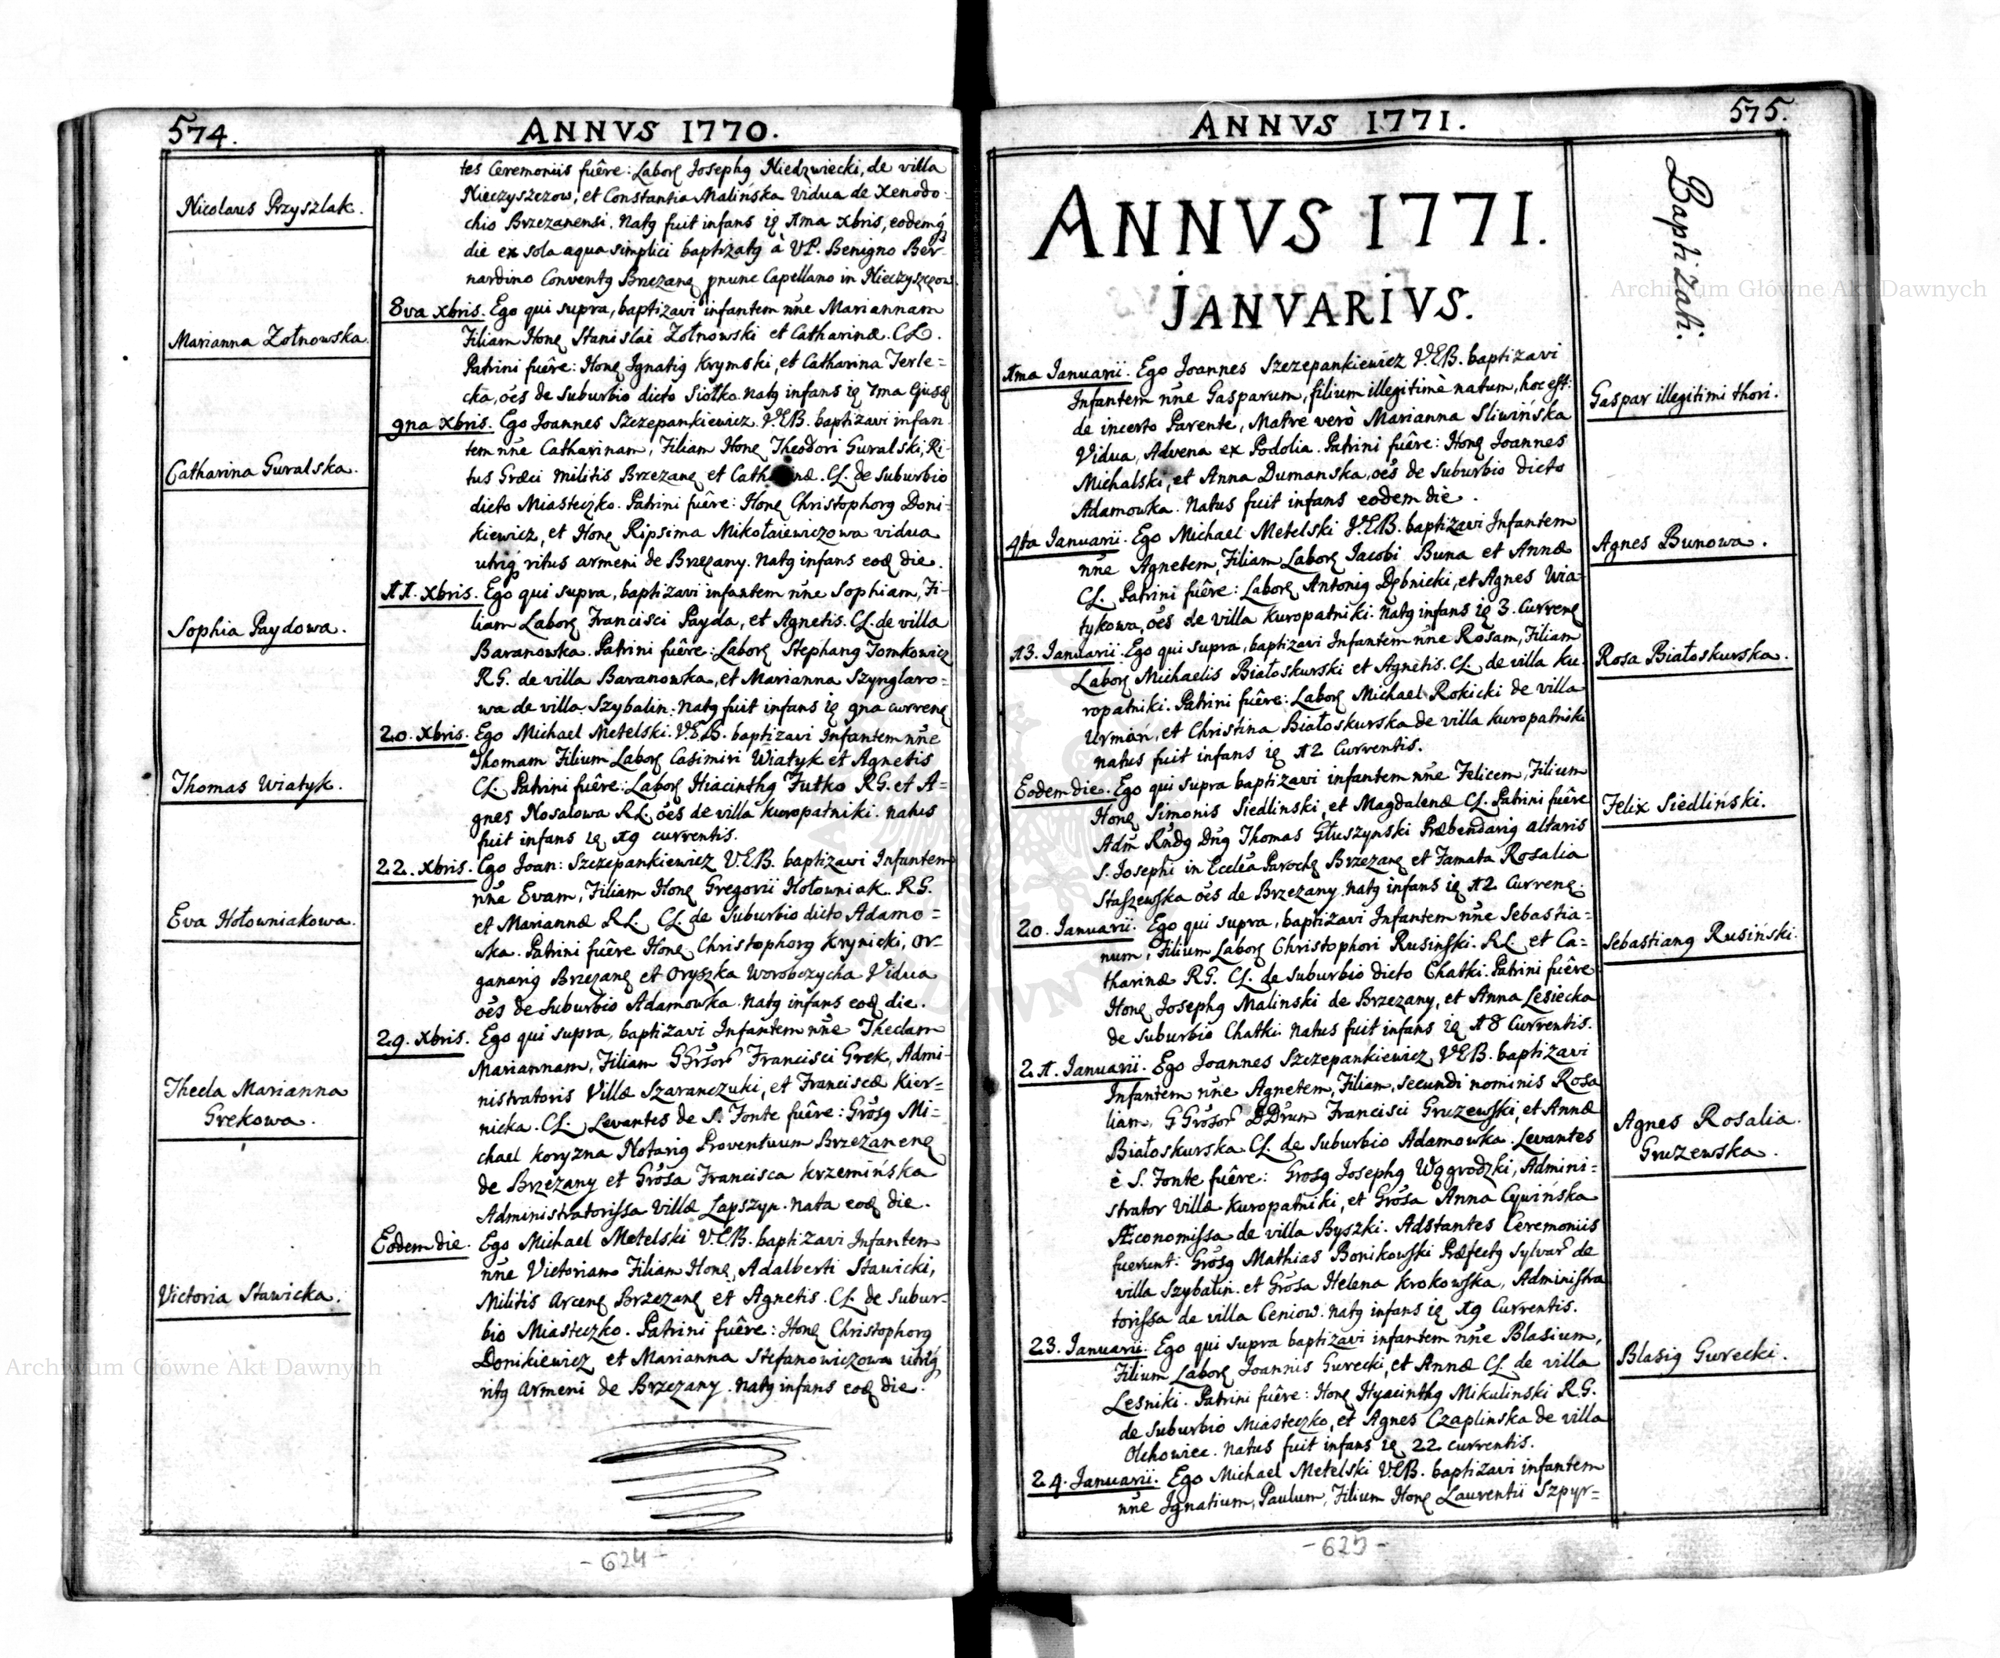 574.
ANNVS 1770.
Nicolaus Przyszlak.
Marianna Zołnowska.
Catharina Guralska.
Sophia Paydowa.
Thomas Wiatyk.
Eva Hołowniakowa.
Thecla Marianna
Grekowa.
Victoria Stawicka.
tes Ceremoniis fuêre: Laborꝫ Josephꝯ Niedzwiecki, de villa
Nieczyszczow, et Constantia Malińska Vidua de Xenodo-
chio Brzezanensi. Natꝯ fuit infans iꝫ 1ma Xbris, eodemqꝫ
die ex sola aqua simplici baptizatꝯ à VP. Benigno Ber-
nardino Conventꝯ Brzezanꝫ pnunc Capellano in Nieczyszczow.
8va Xbris. Ego qui supra, baptizavi infantem nñe Mariannam
Filiam Honꝫ Stanislai Zołnowski et Catharinæ. CL.
Patrini fuêre: Honꝫ Ignatiꝯ Krymski, et Catharina Terle=
cka, oẽs de Suburbio dicto Siołko. Natꝯ infans iꝫ 7ma ejusꝫ
9na Xbris. Ego Joannes Szczepankiewicz. V.E.B. baptizavi infan
tem nñe Catharinam, Filiam Honꝫ Theodori Guralski, Ri-
tus Græci Militis Brzezanꝫ et Catharinæ. CL. de Suburbio
dicto Miasteczko. Patrini fuêre: Honꝫ Christophorꝯ Doni-
kiewicz, et Honꝫ Ripsima Mikołaiewiczowa vidua
utriqꝫ ritus armeni de Brzezany. Natꝯ infans eoꝫ die.
11. Xbris. Ego qui supra, baptizavi infantem nñe Sophiam, Fi-
liam Laborꝫ Francisci Payda, et Agnetis. CL. de villa
Baranowka. Patrini fuêre: Laborꝫ Stephanꝯ Tomkowicz
R.G. de villa Baranowka, et Marianna Szynglaro-
wa de villa Szybalin. Natꝯ fuit infans iꝫ 9na currenꝫ
20. Xbris. Ego Michael Metelski. V.E.B. baptizavi Infantem nñe
Thomam Filium Laborꝫ Casimiri Wiatyk et Agnetis
CL. Patrini fuêre: Laborꝫ Hiacinthꝯ Futko R.G. et A=
gnes Nosalowa R.L. oẽs de villa Kuropatniki. natus
fuit infans iꝫ 19 currentis.
22. Xbris. Ego Joan: Szczepankiewicz V.E.B. baptizavi Infantem
nñe Evam, Filiam Honꝫ Gregorii Hołowniak. R.G.
et Mariannæ R.L. CL. de Suburbio dicto Adamo=
wka. Patrini fuêre Honꝫ Christophorꝯ Krynicki, or-
ganariꝯ Brzezanꝫ et Oryszka Worobczycha Vidua
oẽs de Suburbio Adamowka. Natꝯ infans eoꝫ die.
29. Xbris. Ego qui supra, baptizavi Infantem nñe Theclam
Mariannam, Filiam GGrsorꝫ Francisci Grek, Admi-
nistratoris Villæ Szaranczuki, et Franciscæ Kier-
nicka. CL. Levantes de S. Fonte fuêre: Grosꝯ Mi-
chael Koryzna Notariꝯ Proventuum Brzezanenꝫ
de Brzezany et Grõsa Francisca Krzemińska
Administratorissa villæ Lapszyn. Nata eoꝫ die.
Eodem die. Ego Michael Metelski V.E.B. baptizavi Infantem
nñe Victoriam Filiam Honꝫ, Adalberti Stawicki,
Militis Arcenꝫ Brzezanꝫ et Agnetis. CL. de Subur-
bio Miasteczko. Patrini fuêre: Honꝫ Christophorꝯ
Donikiewicz et Marianna Stefanowiczowa utriqꝫ
ritꝯ Armeni de Brzezany. Natꝯ infans eoꝫ die.
-624-
ANNVS 1771.
575.
ANNVS 1771.
JANVARIVS.
Baptizati.
1ma Januarii. Ego Joannes Szczepankiewicz V.E.B. baptizavi
Infantem nñe Gasparum, filium illegitimè natum, hoc est:
de incerto Parente, Matre verò Marianna Sliwińska
Vidua, Advena ex Podolia. Patrini fuêre: Honꝫ Joannes
Michalski, et Anna Dumanska, oẽs de Suburbio dicto
Adamowka. Natus fuit infans eodem die.
4ta Januarii. Ego Michael Metelski V.E.B. baptizavi Infantem
nñe Agnetem, Filiam Laborꝫ Jacobi Buna et Annæ
CL. Patrini fuêre: Laborꝫ Antoniꝯ Dębnicki, et Agnes Wia-
tykowa, oẽs de villa Kuropatniki. Natꝯ infans iꝫ 3. Currenꝫ
13. Januarii. Ego qui supra, baptizavi Infantem nñe Rosam, Filiam
Laborꝫ Michaelis Białoskurski et Agnetis. CL. de villa Ku-
ropatniki. Patrini fuêre: Laborꝫ Michael Rokicki de villa
Urmań, et Christina Białoskurska de villa Kuropatniki
natus fuit infans iꝫ 12 Currentis.
Eodem die. Ego qui supra baptizavi infantem nñe Felicem, Filium
Honꝫ Simonis Siedlinski, et Magdalenæ CL. Patrini fuêre
Adm̃ Rñdꝯ Dñꝯ Thomas Głuszynski Præbendariꝯ altaris
S. Josephi in Eccl̃ea Parochꝫ Brzezanꝫ et Famata Rosalia
Staszewska oẽs de Brzezany. Natꝯ infans iꝫ 12 Currenꝫ.
20. Januarii. Ego qui supra, baptizavi Infantem nñe Sebastia=
num, Filium Laborꝫ Christophori Rusinski. R.L. et Ca=
tharinæ R.G. CL. de Suburbio dicto Chatki. Patrini fuêre
Honꝫ Josephꝯ Malinski de Brzezany, et Anna Lesiecka
de Suburbio Chatki. Natus fuit infans iꝫ 18 Currentis.
21. Januarii. Ego Joannes Szczepankiewicz V.E.B. baptizavi
Infantem nñe Agnetem, Filiam, secundi nominis Rosa
liam, GGrosorꝫ DDrum Francisci Gruzewski, et Annæ
Białoskurska CL. de Suburbio Adamowka. Levantes
è S. Fonte fuêre: Grosꝯ Josephꝯ Wągrodzki, Admini=
strator Villæ Kuropatniki, et Grõsa Anna Cywińska
Æconomissa de villa Byszki. Adstantes Ceremoniis
fuerunt: Grosꝯ Mathias Bonikowski Præfectꝯ Sylvarꝫ de
villa Szybalin. et Grõsa Helena Krokowska, Administra
torissa de villa Ceniow. Natꝯ infans iꝫ 19 Currentis.
23. Januarii. Ego qui supra baptizavi infantem nñe Blasium,
Filium Laborꝫ Joannis Gurecki, et Annæ CL. de villa
Lesniki. Patrini fuêre: Honꝫ Hyacinthꝯ Mikulinski R.G.
de Suburbio Miasteczko, et Agnes Czaplinska de villa
Olchowiec. Natus fuit infans iꝫ 22 currentis.
24. Januarii. Ego Michael Metelski V.E.B. baptizavi infantem
nñe Ignatium, Paulum, Filium Honꝫ Laurentii Szpyr=
Gaspar illegitimi thori.
Agnes Bunowa.
Rosa Białoskurska.
Felix Siedliński.
Sebastianꝯ Rusiński.
Agnes Rosalia
Gruzewska.
Blasiꝯ Gurecki.
-625-
Archiwum Główne Akt Dawnych
Archiwum Główne Akt Dawnych